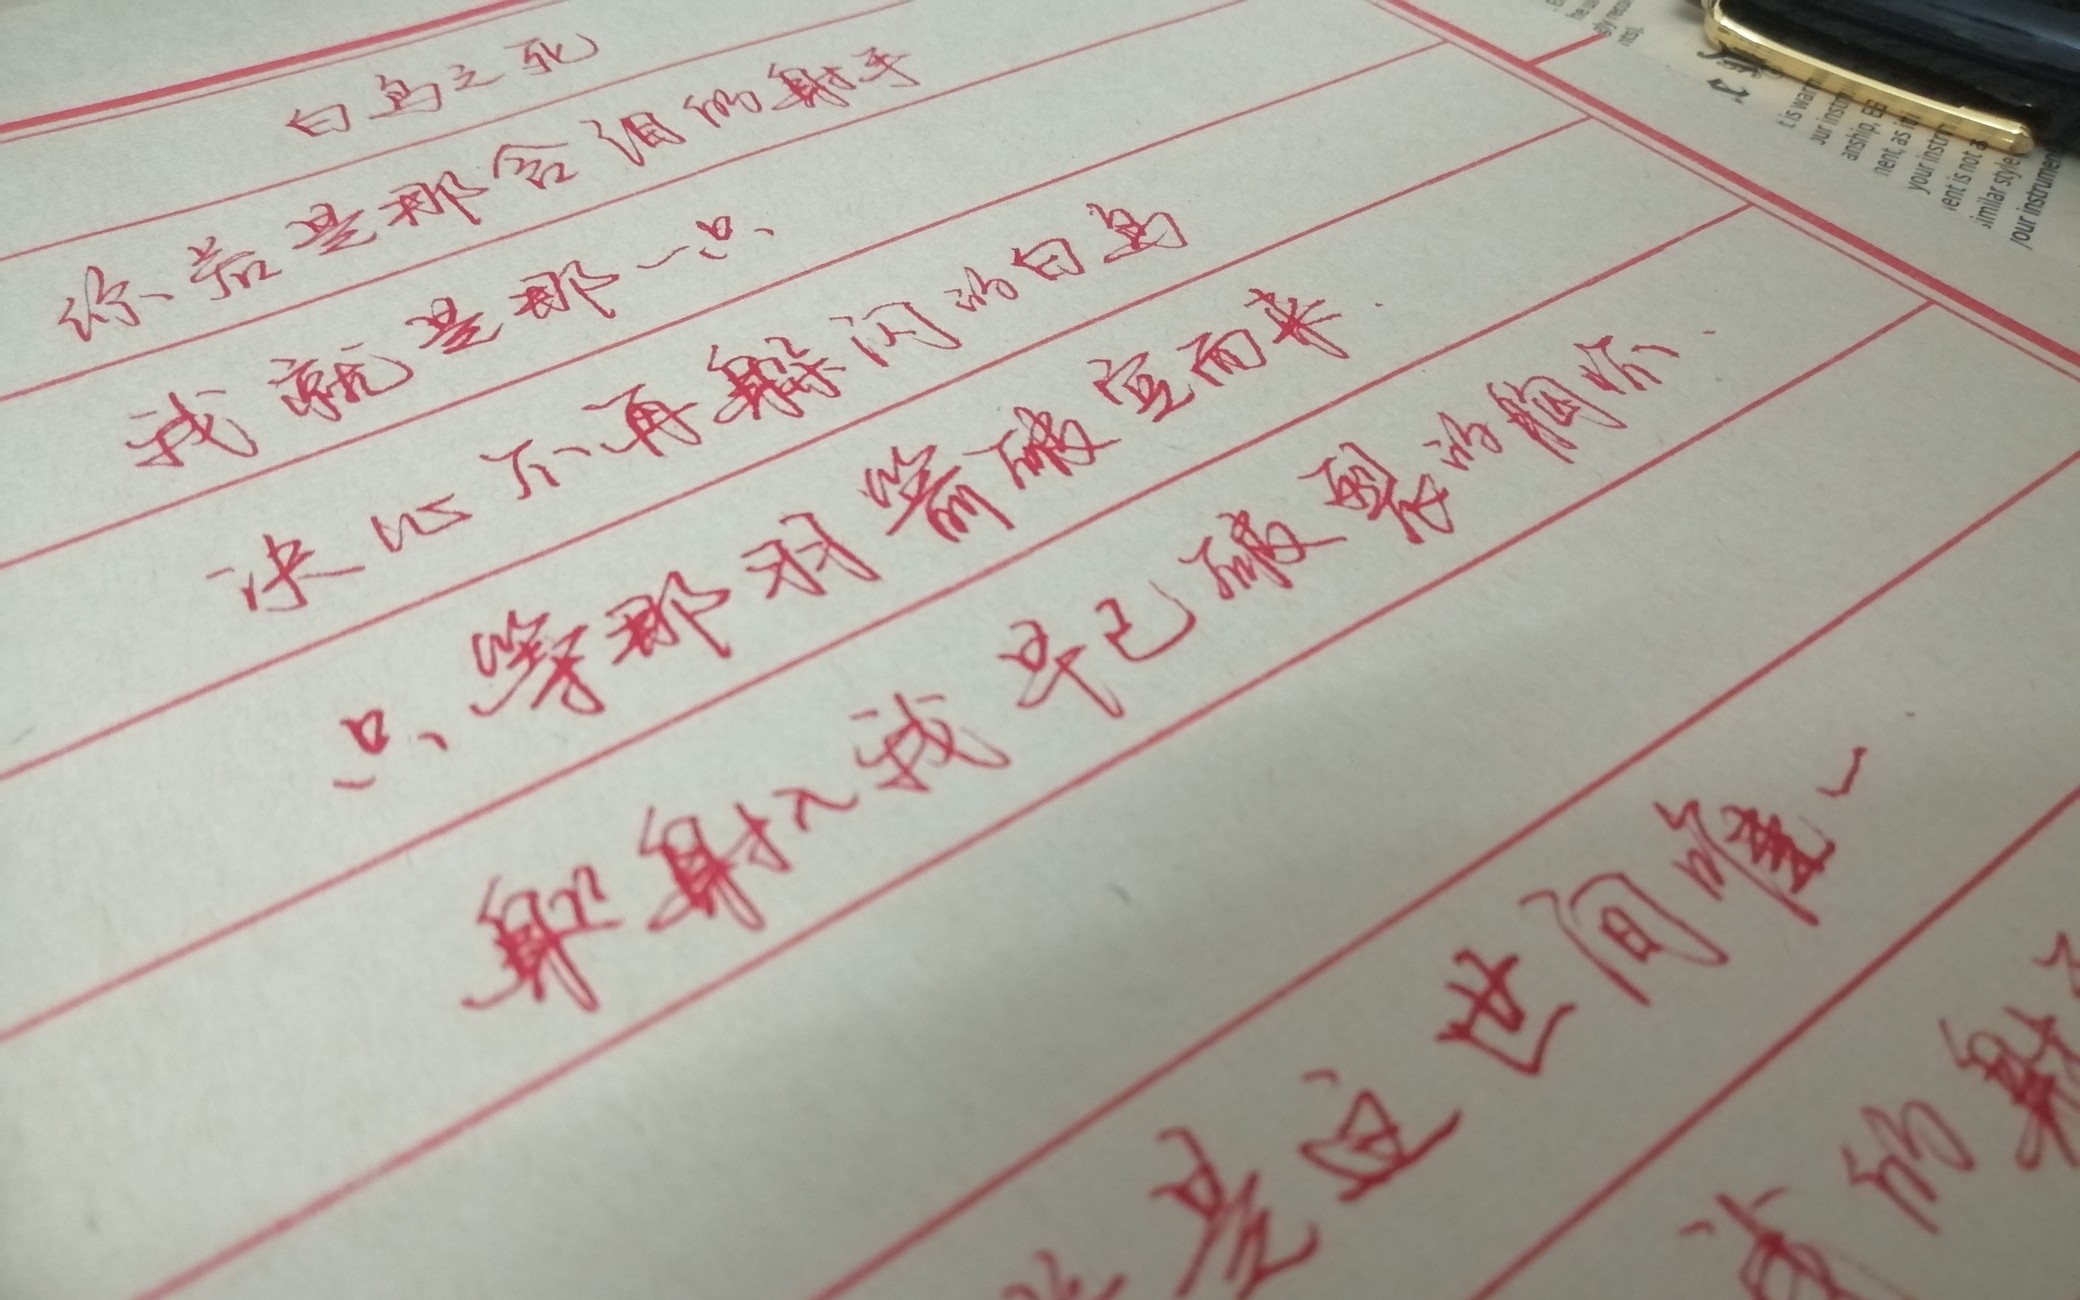 白鸟之死
你若是那含泪的射手
我就是那一只
决心不再躲闪的白鸟
只等那羽箭破空而来
射入我早已破裂的胸怀
是这世间唯一
我的射
t is war
our instr
anship,
ment, as
your instr
ent is not a
imilar style
your instrument